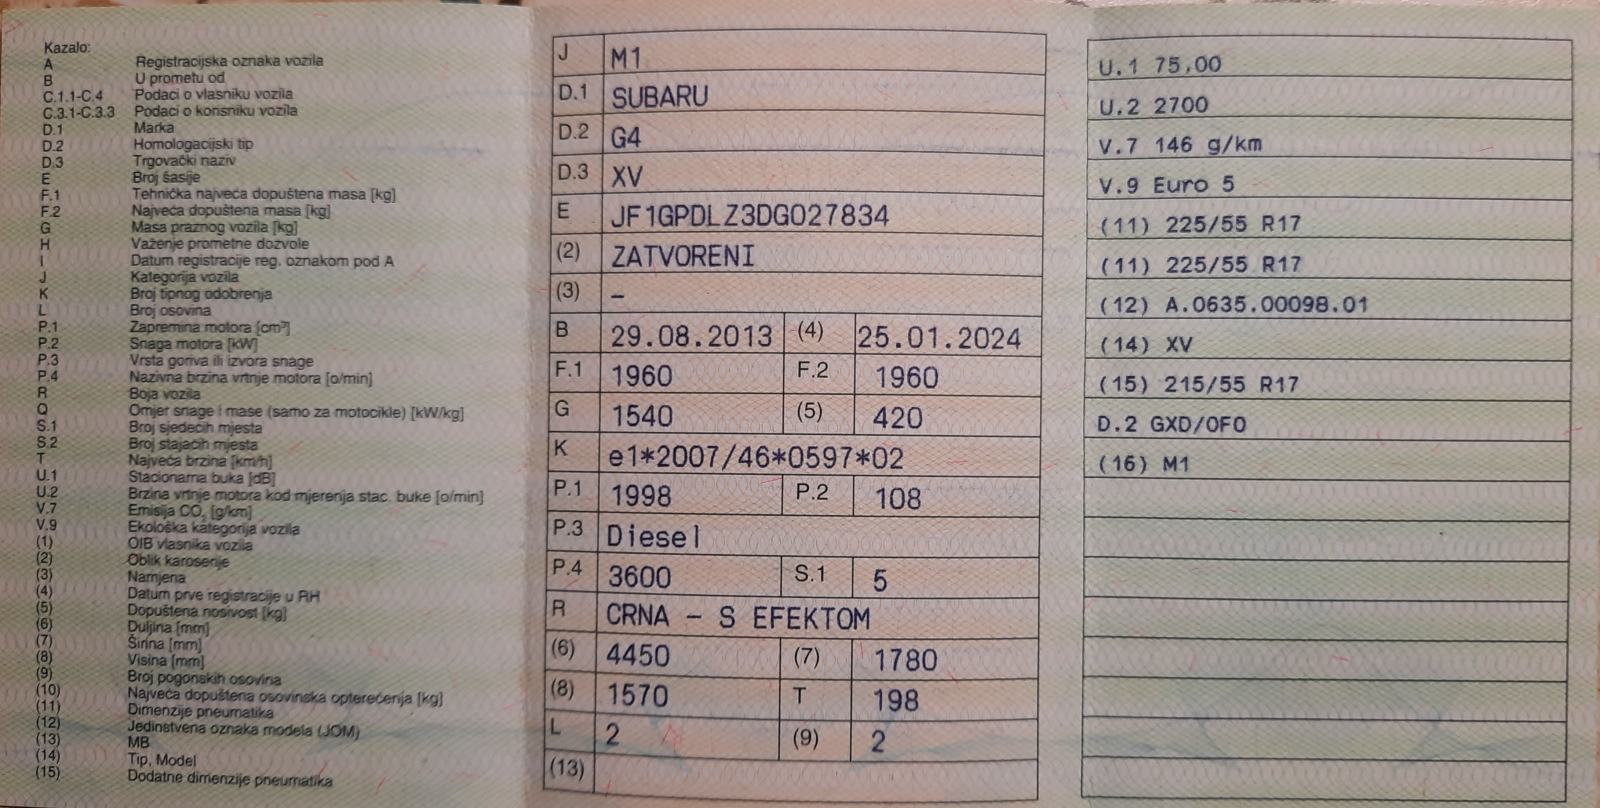 Kazalo:
A Registracijska oznaka vozila
B U prometu od
C.1.1-C.4 Podaci o vlasniku vozila
C.3.1-C.3.3 Podaci o korisniku vozila
D.1 Marka
D.2 Homologacijski tip
D.3 Trgovački naziv
E Broj šasije
F.1 Tehnička najveća dopuštena masa [kg]
F.2 Najveća dopuštena masa [kg]
G Masa praznog vozila [kg]
H Važenje prometne dozvole
I Datum registracije reg. oznakom pod A
J Kategorija vozila
K Broj tipnog odobrenja
L Broj osovina
P.1 Zapremina motora [cm³]
P.2 Snaga motora [kW]
P.3 Vrsta goriva ili izvora snage
P.4 Nazivna brzina vrtnje motora [o/min]
R Boja vozila
Q Omjer snage i mase (samo za motocikle) [kW/kg]
S.1 Broj sjedećih mjesta
S.2 Broj stajaćih mjesta
T Najveća brzina [km/h]
U.1 Stacionarna buka [dB]
U.2 Brzina vrtnje motora kod mjerenja stac. buke [o/min]
V.7 Emisija CO₂ [g/km]
V.9 Ekološka kategorija vozila
(1) OIB vlasnika vozila
(2) Oblik karoserije
(3) Namjena
(4) Datum prve registracije u RH
(5) Dopuštena nosivost [kg]
(6) Duljina [mm]
(7) Širina [mm]
(8) Visina [mm]
(9) Broj pogonskih osovina
(10) Najveća dopuštena osovinska opterećenja [kg]
(11) Dimenzije pneumatika
(12) Jedinstvena oznaka modela (JOM)
(13) MB
(14) Tip, Model
(15) Dodatne dimenzije pneumatika
J M1
D.1 SUBARU
D.2 G4
D.3 XV
E JF1GPDLZ3DG027834
(2) ZATVORENI
(3) –
B 29.08.2013 (4) 25.01.2024
F.1 1960 F.2 1960
G 1540 (5) 420
K e1*2007/46*0597*02
P.1 1998 P.2 108
P.3 Diesel
P.4 3600 S.1 5
R CRNA – S EFEKTOM
(6) 4450 (7) 1780
(8) 1570 T 198
L 2 (9) 2
(13)
U.1 75,00
U.2 2700
V.7 146 g/km
V.9 Euro 5
(11) 225/55 R17
(11) 225/55 R17
(12) A.0635.00098.01
(14) XV
(15) 215/55 R17
D.2 GXD/0F0
(16) M1